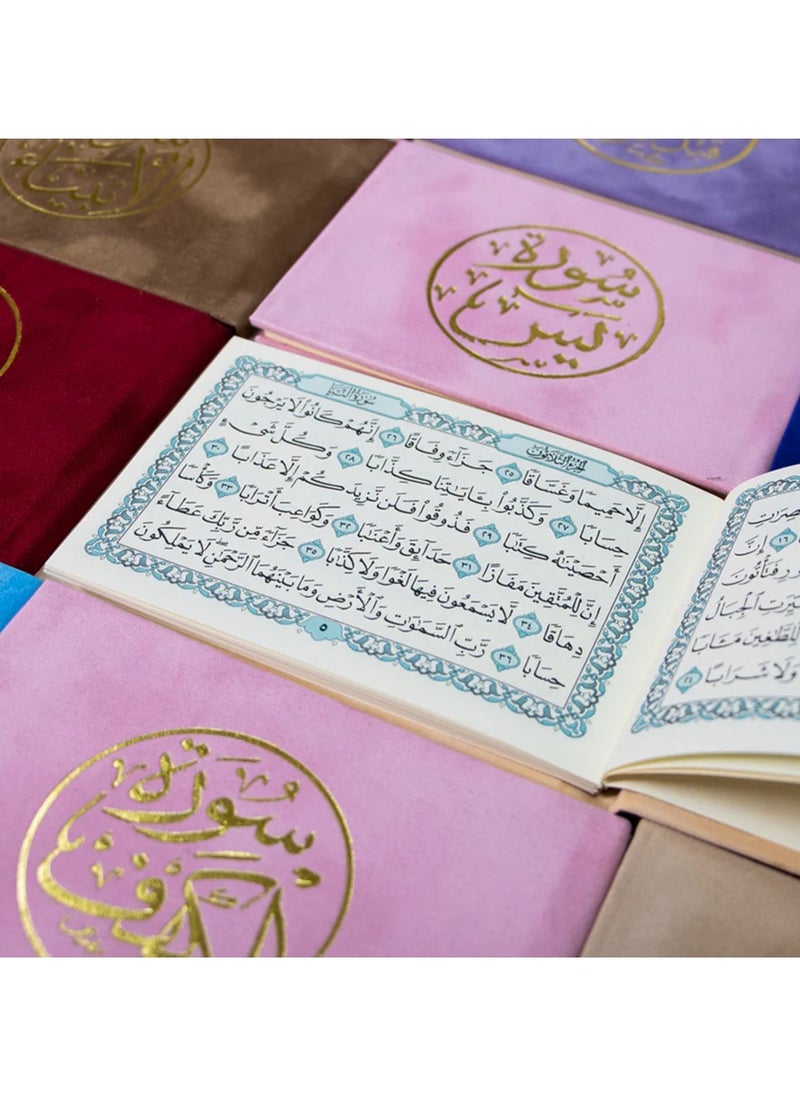 سورة
يس
الجزء الثلاثون
سورة النبأ
إِلَّا حَمِيمًا وَغَسَّاقًا ٢٥ جَزَآءً وِفَاقًا ٢٦ إِنَّهُمْ كَانُوا۟ لَا يَرْجُونَ
حِسَابًا ٢٧ وَكَذَّبُوا۟ بِـَٔايَـٰتِنَا كِذَّابًا ٢٨ وَكُلَّ شَىْءٍ
أَحْصَيْنَـٰهُ كِتَـٰبًا ٢٩ فَذُوقُوا۟ فَلَن نَّزِيدَكُمْ إِلَّا عَذَابًا ٣٠
إِنَّ لِلْمُتَّقِينَ مَفَازًا ٣١ حَدَآئِقَ وَأَعْنَـٰبًا ٣٢ وَكَوَاعِبَ أَتْرَابًا ٣٣ وَكَأْسًا
دِهَاقًا ٣٤ لَّا يَسْمَعُونَ فِيهَا لَغْوًا وَلَا كِذَّٰبًا ٣٥ جَزَآءً مِّن رَّبِّكَ عَطَآءً
حِسَابًا ٣٦ رَّبِّ ٱلسَّمَـٰوَٰتِ وَٱلْأَرْضِ وَمَا بَيْنَهُمَا ٱلرَّحْمَـٰنِ ۖ لَا يَمْلِكُونَ
٥
١٦ إِنَّ
فَتَأْتُونَ
ٱلْجِبَالُ
لِّلطَّـٰغِينَ مَـَٔابًا
وَلَا شَرَابًا ٢٤
سورة